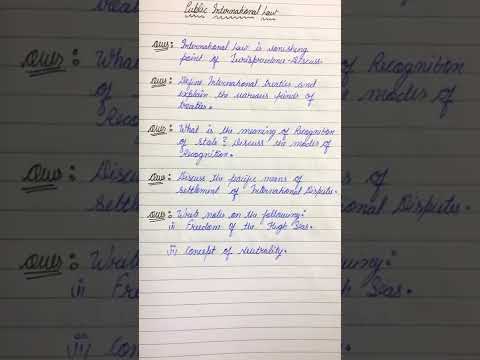 Public International Law
Ques: International Law is vanishing
point of Jurisprudence- Discuss.
Ques: Define International treaties and
explain the various kinds of
treaties.
Ques: What is the meaning of Recognition
of state? Discuss the modes of
Recognition.
Ques: Discuss the pacific means of
settlement of International Disputes.
Ques: Write notes on the following:
i) Freedom of the High Seas.
ii) Concept of Neutrality.